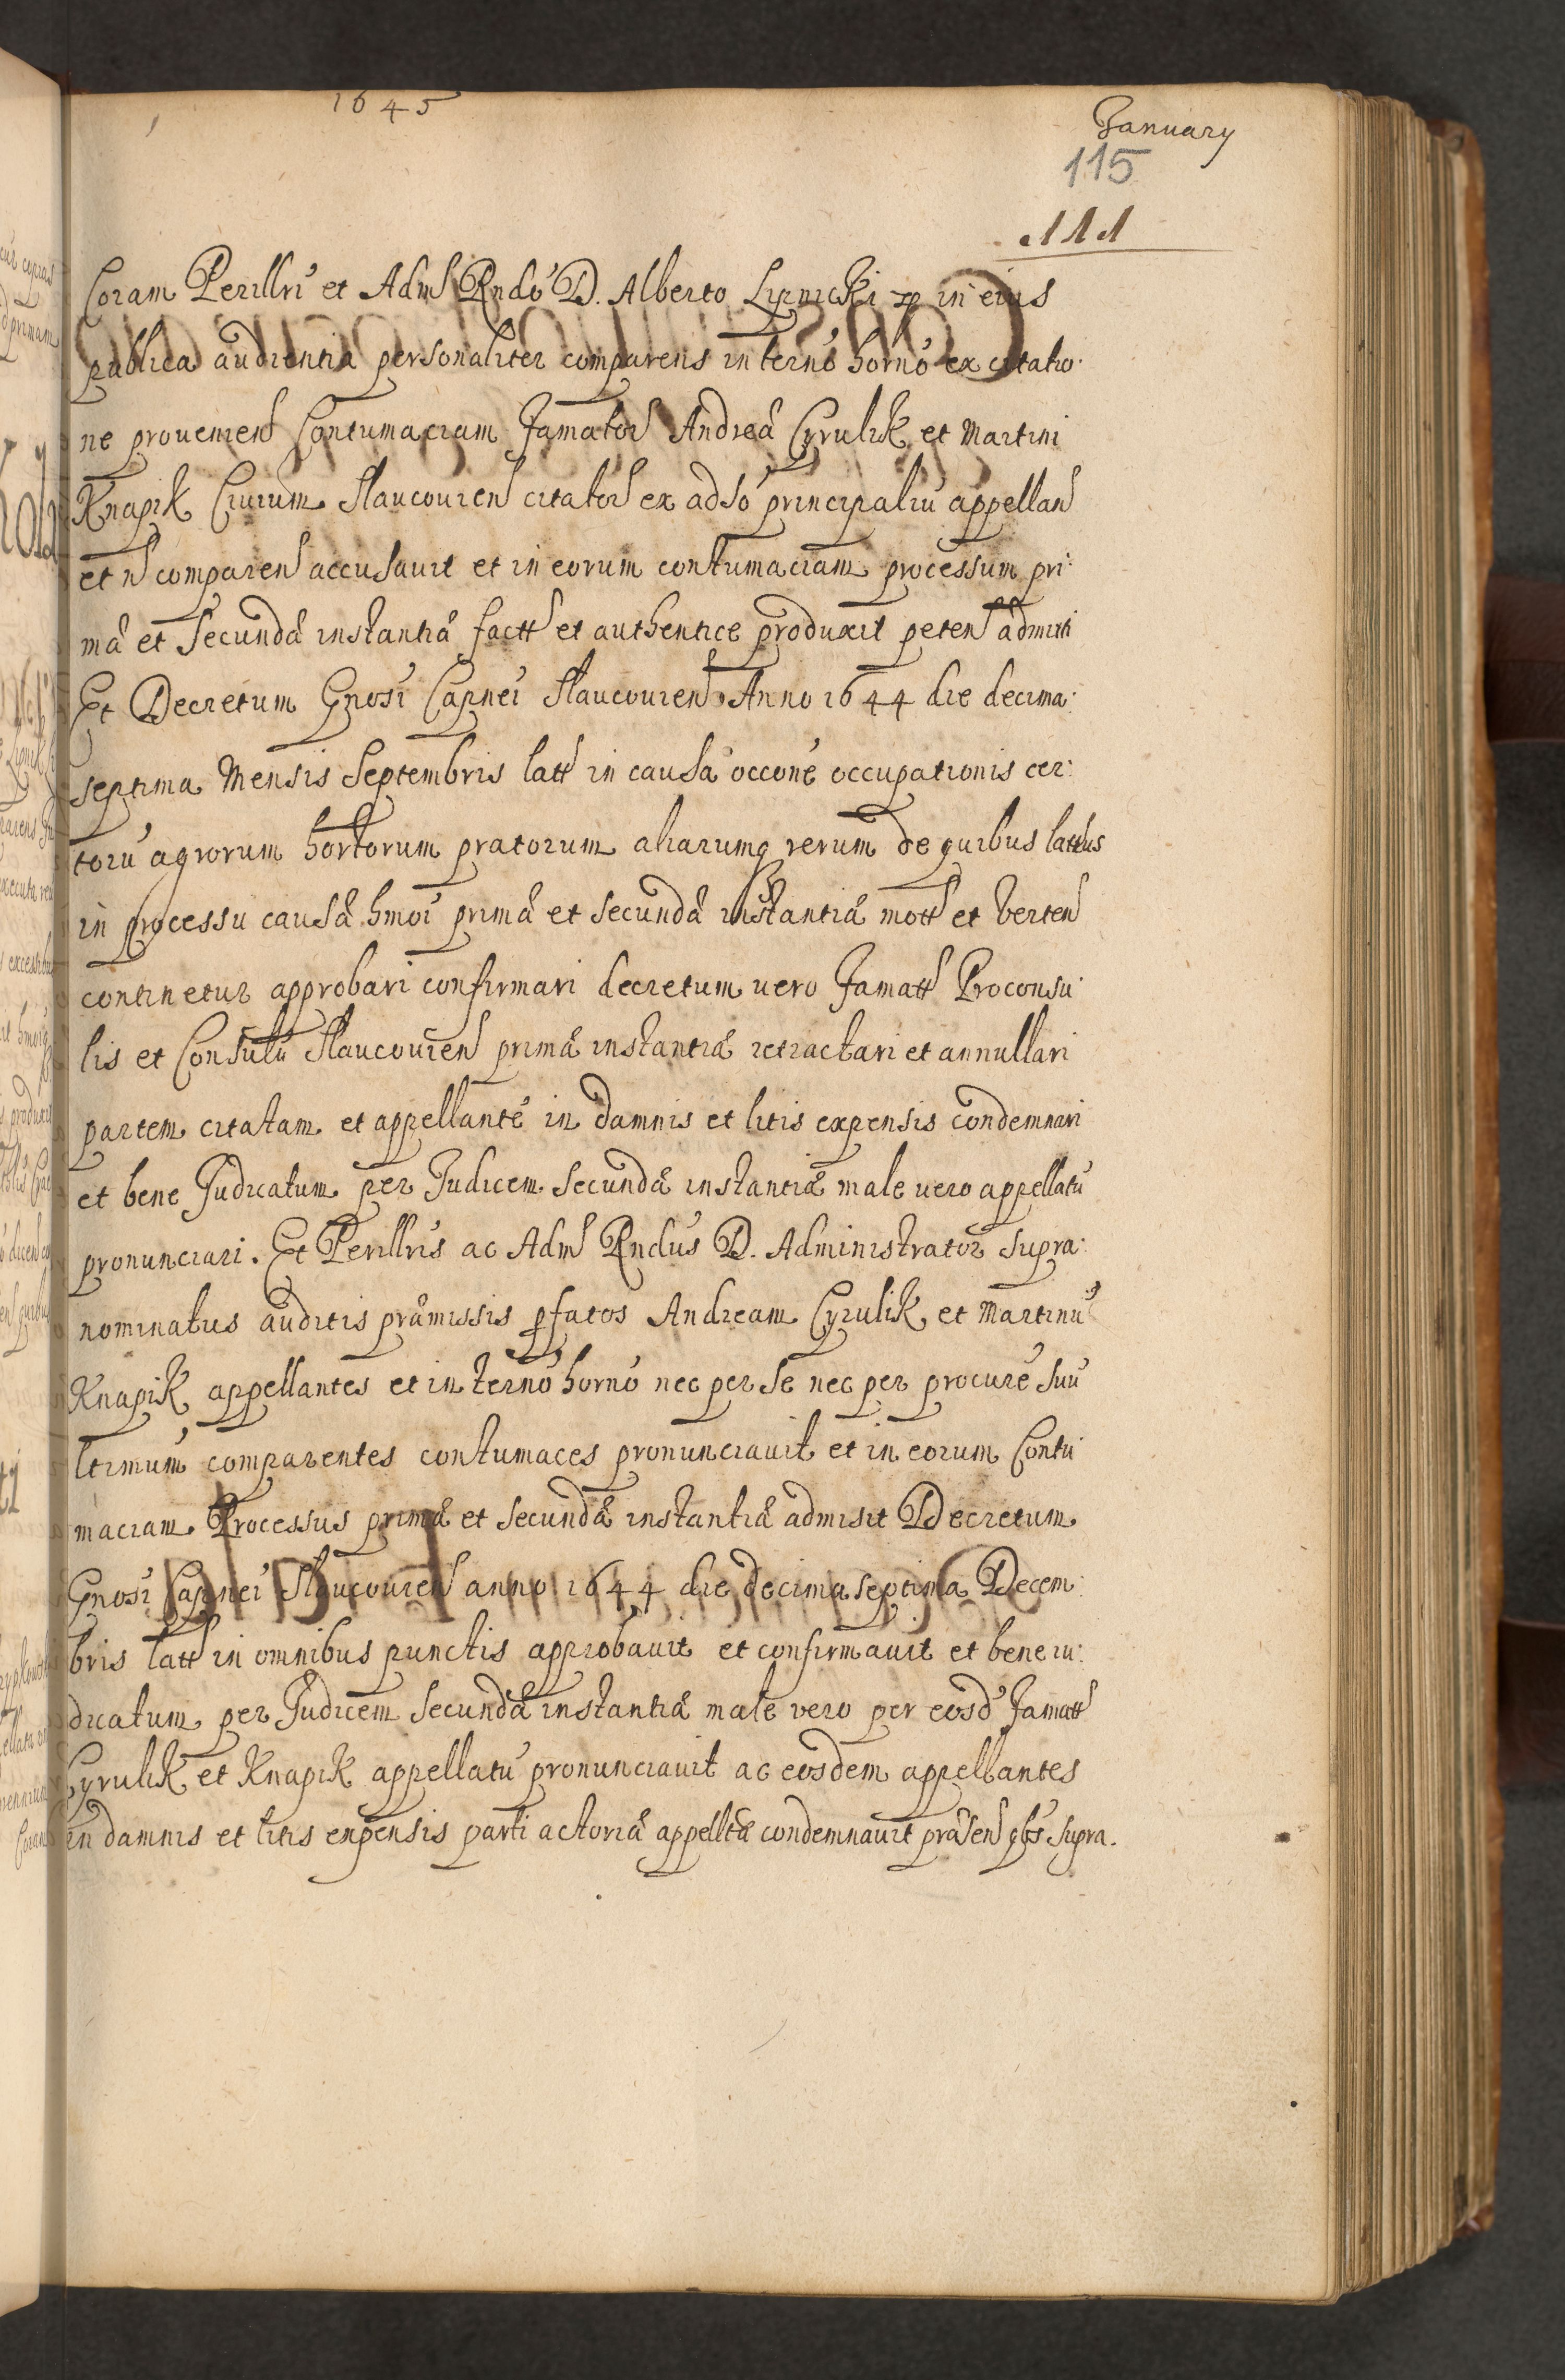 1645
January
115
111
Coram Perillri et Adm Rndo D. Alberto Lipnicki in eius
publica audientia personaliter comparens in termo horno ex citatio:
ne prouenien Contumaciam famator Andreæ Cyrulik et Martini
Knapik Ciuium Slaucouien citator ex adso principaliu appellan
et n comparen accusauit et in eorum contumaciam processum pri:
mæ et secundæ instantiæ factt et authentice produxit peten admitti
Et Decretum Gnosi Capnei Slaucouien Anno 1644 die decima:
septima Mensis Septembris latt in causa occone occupationis cer:
toru agrorum hortorum pratorum aliarumq rerum de quibus latius
in processu causæ hmoi primæ et secundæ instantiæ mott et verten
continetur approbari confirmari decretum vero famatt Proconsu:
lis et Consulu Slaucouien primæ instantiæ retractari et annullari
partem citatam et appellante in damnis et litis expensis condemnari
et bene Judicatum per Judicem secundæ instantiæ male vero appellatu
pronunciari. Et Perillris ac Adm Rndus D. Administrator supra:
nominatus auditis præmissis pfatos Andream Cyrulik et Martinu
Knapik appellantes et in termo horno nec per se nec per procure suu
ltimum comparentes contumaces pronunciauit et in eorum Contu
maciam Processus primæ et secundæ instantiæ admisit Decretum
Gnosi Capnei Slaucouien anno 1644 die decima septima Decem:
bris latt in omnibus punctis approbauit et confirmauit et bene iu:
dicatum per Judicem secundæ instantiæ male vero per eosd famatt
Cyrulik et Knapik appellatu pronunciauit ac eosdem appellantes
in damnis et litis expensis parti actoriæ appelltæ condemnauit præsen qbs supra.